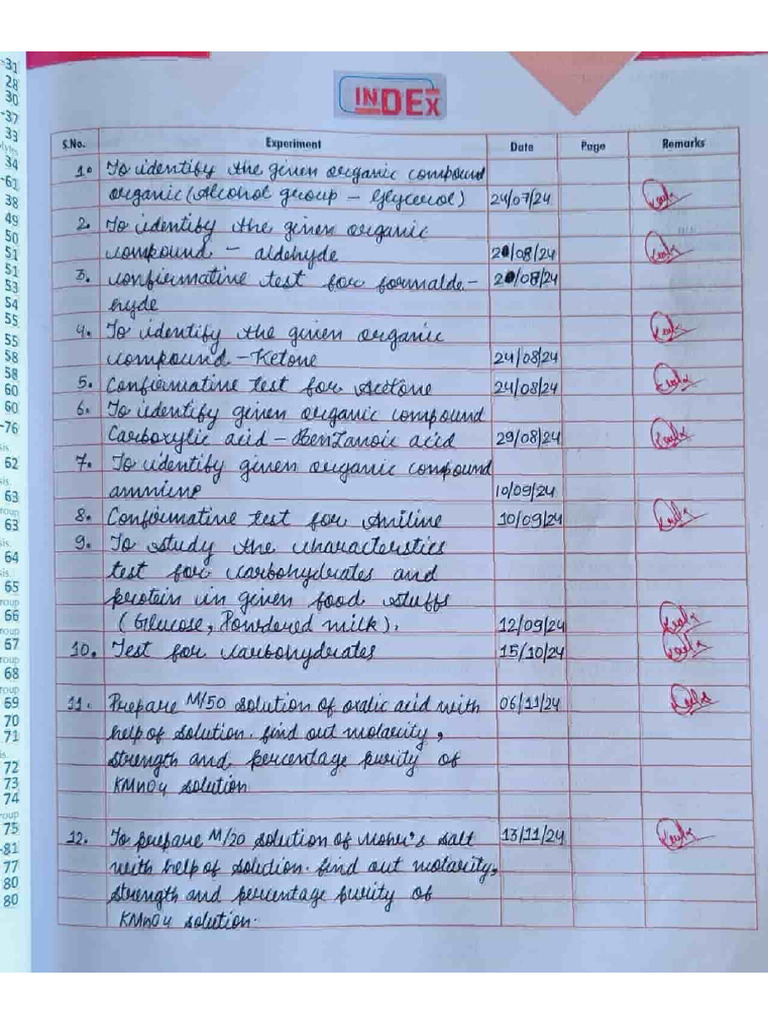 -31
28
30
-37
33
34
-61
38
49
50
51
51
53
54
55
55
58
58
60
60
-76
62
63
63
64
65
66
67
68
69
70
71
72
73
74
75
-81
77
80
80
INDEX
S.No. Experiment Date Page Remarks
1. To identify the given organic compound
organic (Alcohol group - Glycerol) 24/07/24
2. To identify the given organic
compound - aldehyde /08/24
3. Confirmative test for formalde- /08/24
hyde
4. To identify the given organic
compound - Ketone 24/08/24
5. Confirmative test for Acetone 24/08/24
6. To identify given organic compound
Carboxylic acid - BenZanoic acid 29/08/24
7. To identify given organic compound
ammine 10/09/24
8. Confirmative test for Aniline 10/09/24
9. To study the characteristics
test for carbohydrates and
protein in given food stuffs
(Glucose, Powdered milk). 12/09/24
10. Test for carbohydrates 15/10/24
11. Prepare M/50 solution of oxalic acid with 06/11/24
help of solution. find out molarity,
strength and percentage purity of
KMnO4 solution
12. To prepare M/20 solution of Mohr's salt 13/11/24
with help of solution. find out molarity,
strength and percentage purity of
KMnO4 solution.